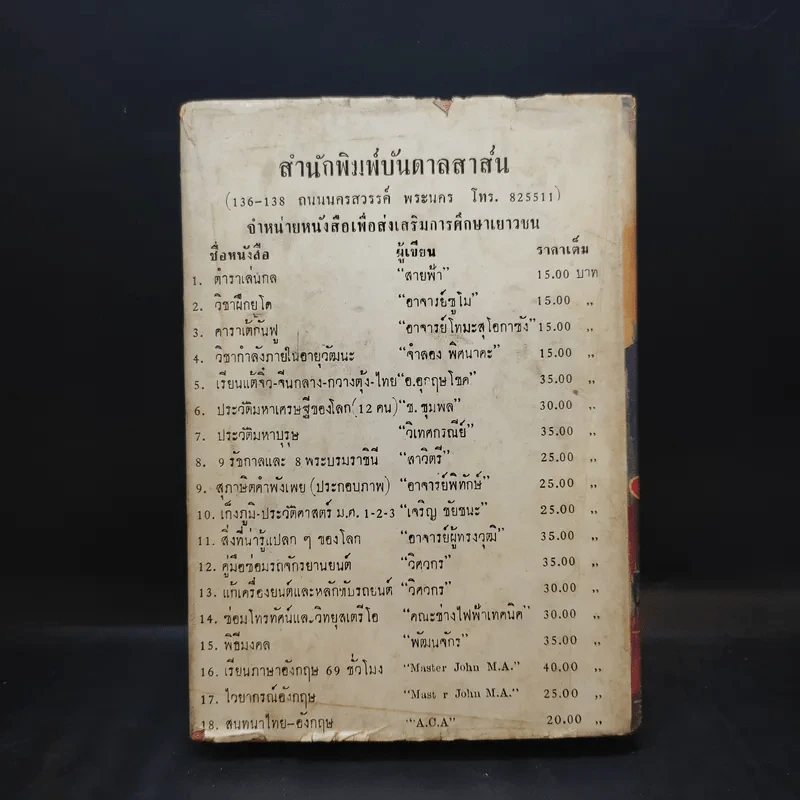 สำนักพิมพ์บันดาลสาส์น
(136-138 ถนนนครสวรรค์ พระนคร โทร. 825511)
จำหน่ายหนังสือเพื่อส่งเสริมการศึกษาเยาวชน
ชื่อหนังสือ ผู้เขียน ราคาเต็ม
1. ตำราเล่นกล “สายฟ้า” 15.00 บาท
2. วิชาฝึกยูโด “อาจารย์ซูโม” 15.00 ,,
3. คาราเต้กันฟู “อาจารย์โทมะสุโอกาซัง” 15.00 ,,
4. วิชากำลังภายในอายุวัฒนะ “จำลอง พิศนาคะ” 15.00 ,,
5. เรียนแต้จิ๋ว-จีนกลาง-กวางตุ้ง-ไทย “อ.อุกฤษโชค” 35.00 ,,
6. ประวัติมหาเศรษฐีของโลก (12 คน) “ช. ชุมพล” 30.00 ,,
7. ประวัติมหาบุรุษ “วิเทศกรณีย์” 35.00 ,,
8. 9 รัชกาลและ 8 พระบรมราชินี “สาวิตรี” 25.00 ,,
9. สุภาษิตคำพังเพย (ประกอบภาพ) “อาจารย์พิทักษ์” 25.00 ,,
10. เก็งภูมิ-ประวัติศาสตร์ ม.ศ. 1-2-3 “เจริญ ชัยชนะ” 25.00 ,,
11. สิ่งที่น่ารู้แปลก ๆ ของโลก “อาจารย์ผู้ทรงวุฒิ” 35.00 ,,
12. คู่มือซ่อมรถจักรยานยนต์ “วิศวกร” 35.00 ,,
13. แก้เครื่องยนต์และหลักขับรถยนต์ “วิศวกร” 30.00 ,,
14. ซ่อมโทรทัศน์และวิทยุสเตรีโอ “คณะช่างไฟฟ้าเทคนิค” 30.00 ,,
15. พิธีมงคล “พัฒนจักร” 35.00 ,,
16. เรียนภาษาอังกฤษ 69 ชั่วโมง “Master John M.A.” 40.00 ,,
17. ไวยากรณ์อังกฤษ “Mast r John M.A.” 25.00 ,,
18. สนทนาไทย-อังกฤษ “A.C.A” 20.00 ,,